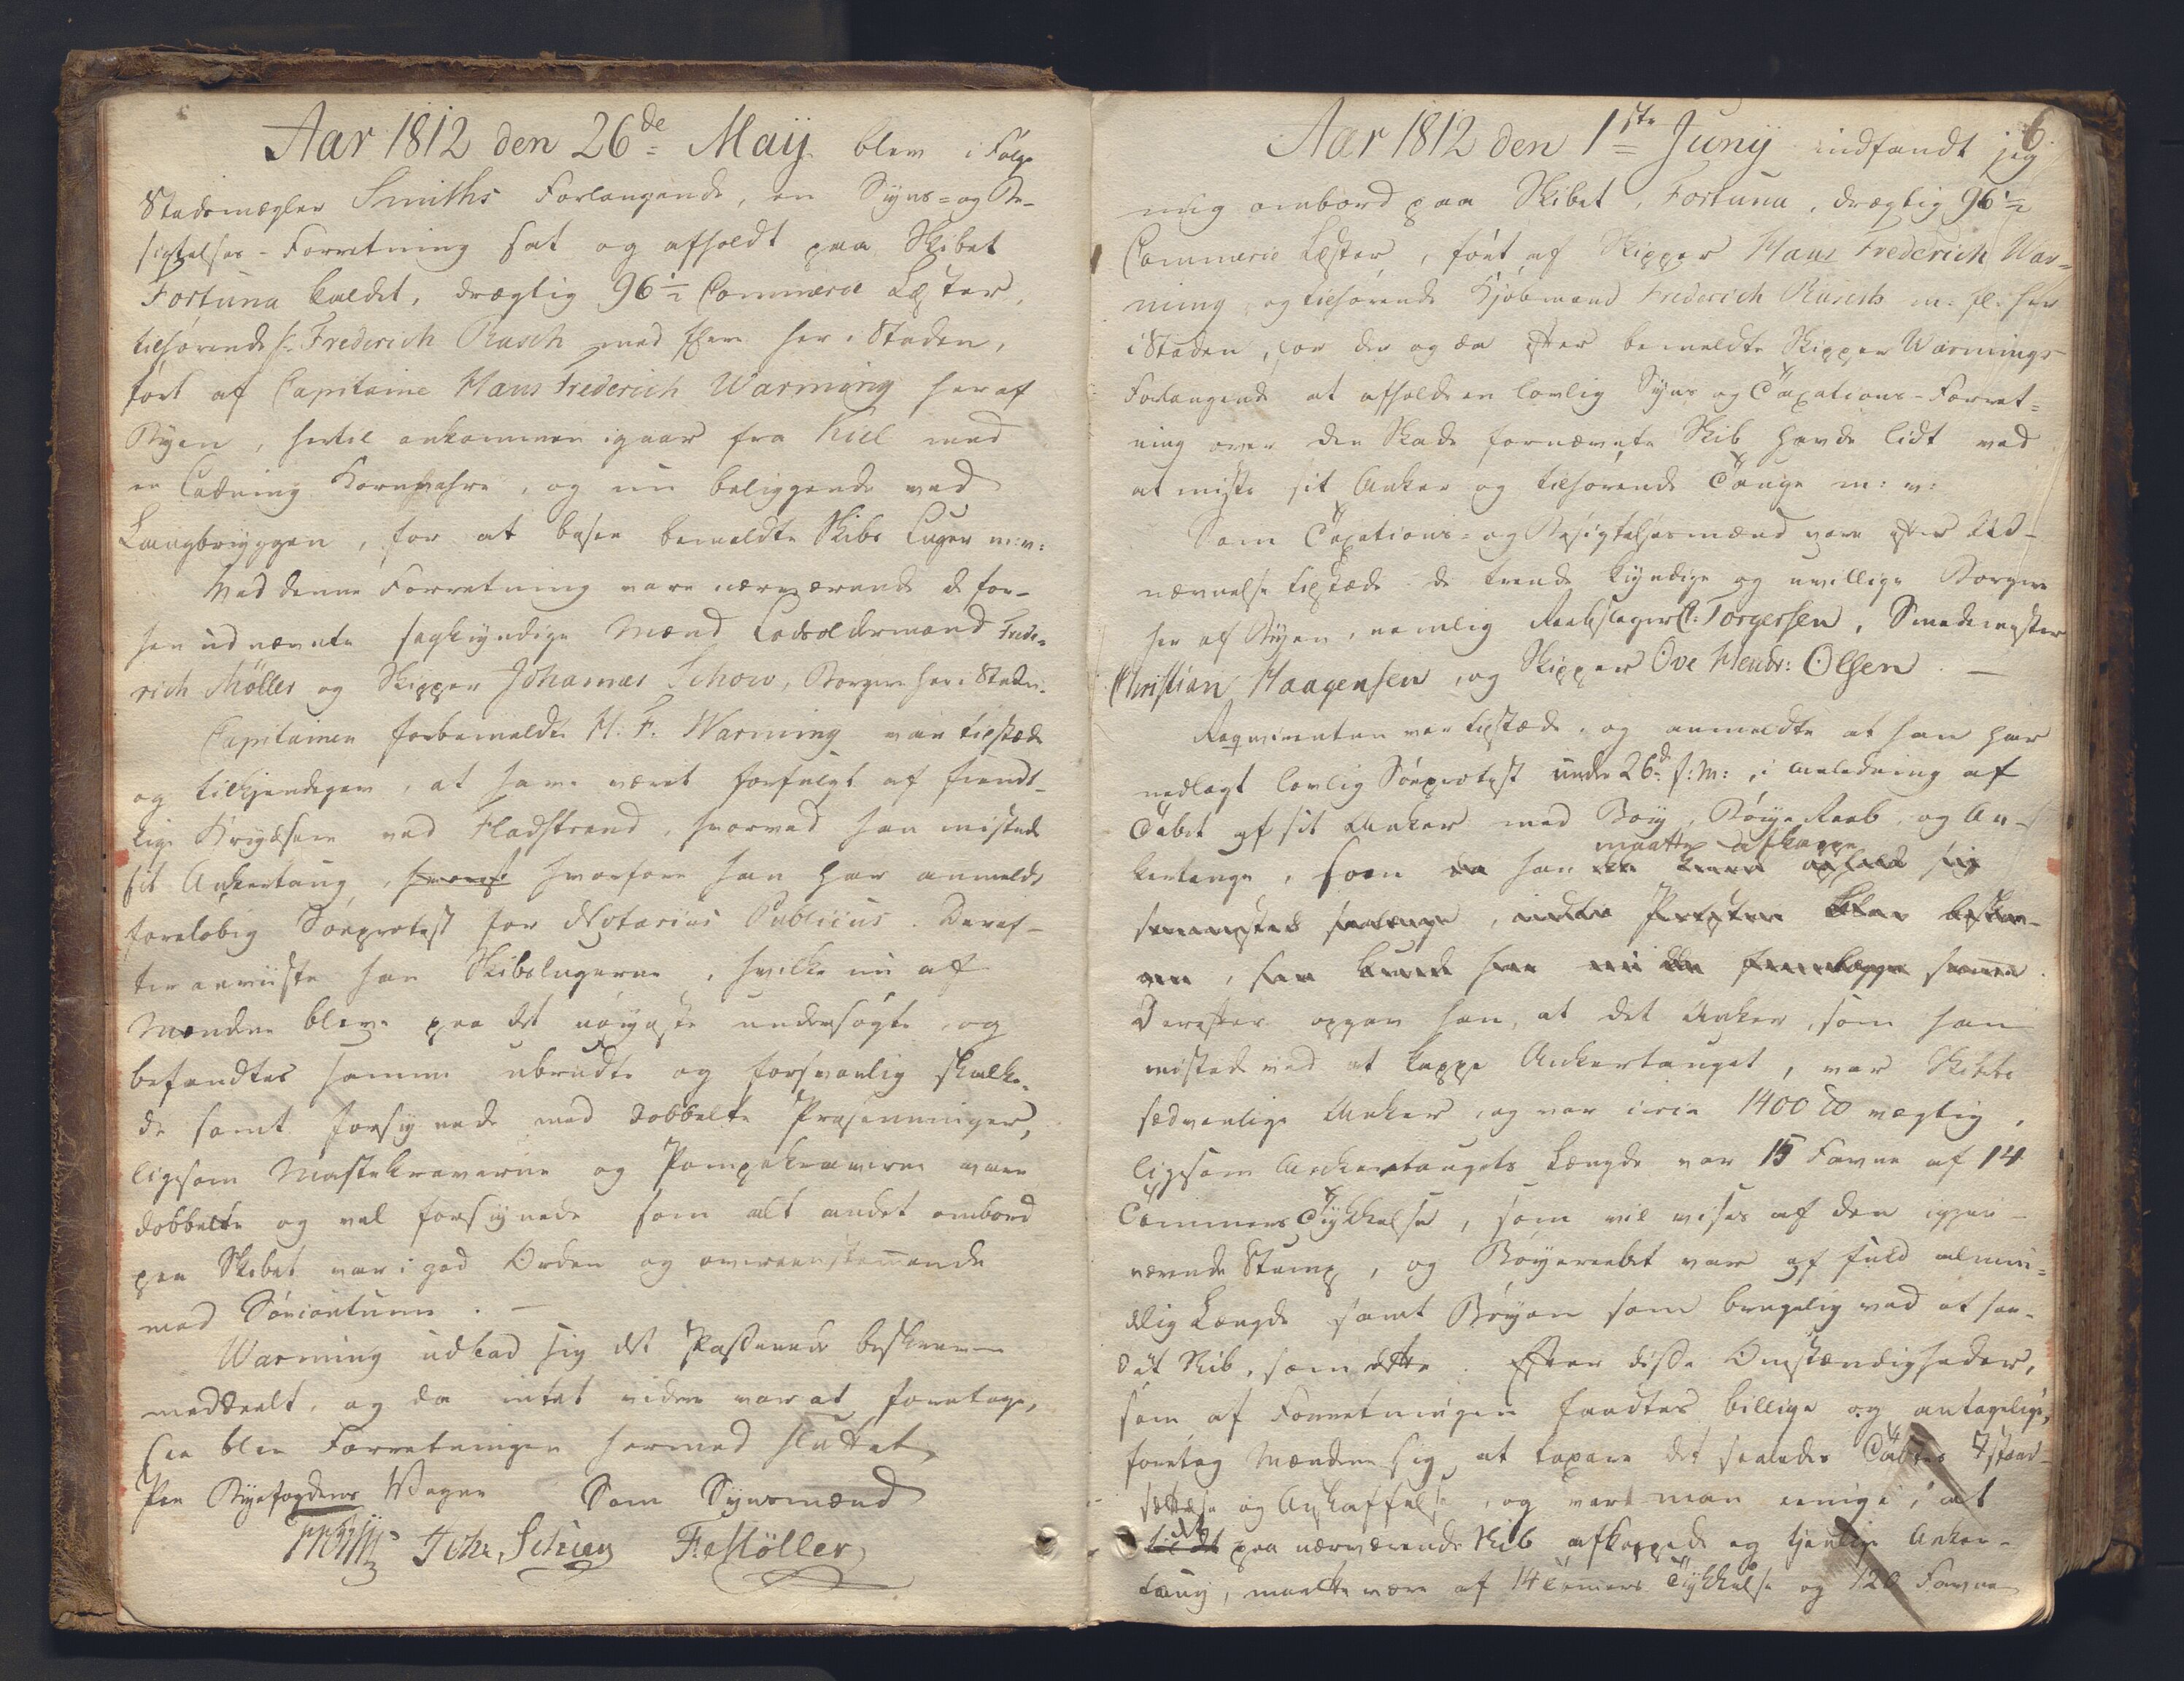 Aar 1812 den 26de May blev i Følge
Stadsmægler Smiths Forlangende, en Syns- og Be-
sigtelses-Forretning sat og afholdt paa Skibet
Fortuna kaldet, drægtig 96½ Commerce Læster,
tilhørende Hr. Frederich Rasch med flere her i Staden,
ført af Capitaine Hans Frederich Warming her af
Byen, hertil ankommen igaar fra Kiel med
en Ladning Kornvahre, og nu beliggende ved
Langbryggen, for at besee bemeldte Skibs Luger m: v:
Ved denne Forretning vare nærværende de for-
hen udnævnte sagkyndige Mænd Lodsoldermand Frede-
rich Möller og Skipper Johannes Schow, Borgere her i Staden.
Capitainen forbemeldte H. F. Warming var tilstæde
og tilkjendegav, at have været forfulgt af fiendt-
lige Krydsere ved Fladstrand, hvorved han mistede
sit Ankertoug, hvorfore han har anmeldt
foreløbig Søeprotest for Notarius Publicus. Deref-
ter anviiste han Skibslugerne, hvilke nu af
Mændene bleve paa det nøyeste undersøgte, og
befandtes samme ubrudte og forsvarlig skalke-
de samt forsynede med dobbelte Presenninger,
ligesom Mastekraverne og Pompekraverne vare
dobbelte og vel forsynede som alt andet ombord
paa Skibet var i god Orden og overeenstemmende
med Søcoutume. —
Warming udbad sig det Passerede beskreven
meddeelt, og da intet videre var at foretage,
saa blev Forretningen hermed sluttet
Paa Byefogdens Vegne Som Synsmænd
Joh: Schow F. Möller
6.
Aar 1812 den 1ste Juny indfandt jeg
mig ombord paa Skibet, Fortuna, drægtig 96½
Commerce Læster, ført af Skipper Hans Frederich War-
ming, og tilhørende Kjøbmand Frederich Rasch m: fl: her
i Staden, for der og da efter bemeldte Skipper Warmings
Forlangende at afholde en lovlig Syns og Taxations-Forret-
ning over den Skade fornævnte Skib havde lidt ved
at miste sit Anker og tilhørende Touge m: v:
Som Taxations- og Besigtelsesmænd vare efter Ud-
nævnelse tilstæde de trende kyndige og uvillige Borgere
her af Byen, nemlig Rebslager C: Torgersen, Smedemester
Christian Haagensen, og Skipper Ove Hendr: Olsen. —
Reqvirenten var tilstæde, og anmeldte at han har
nedlagt lovlig Søeprotest under 26de f: M:, i Anledning af
Tabet af sit Anker med Bøy, Bøye Reeb, og An-
maatte afkappe
kertouge, som da han
Derefter opgav han, at det Anker, som han
mistede ved at kappe Ankertouget, var Skibets
sædvanlige Anker, og var circa 1400 ℔ vægtig,
ligesom Ankertougets Længde var 15 Favne af 14
Tommers Tykkelse, som vil vises af den igjen-
værende Stump, og Bøyereebet var af fuld almin-
delig Længde samt Bøyen som brugelig ved et saa-
dat Skib, som dette. Efter disse Omstændigheder,
som af Forretningen fandtes billige og antagelige,
foretog Mændene sig, at taxere det saaledes Tabtes Istand-
sættelse og Anskaffelse, og vare man eenige i at
det paa nærværende Skib afkappede og tjenlige Anker-
toug, maatte være af 14 Tomers Tykkelse og 120 Favne